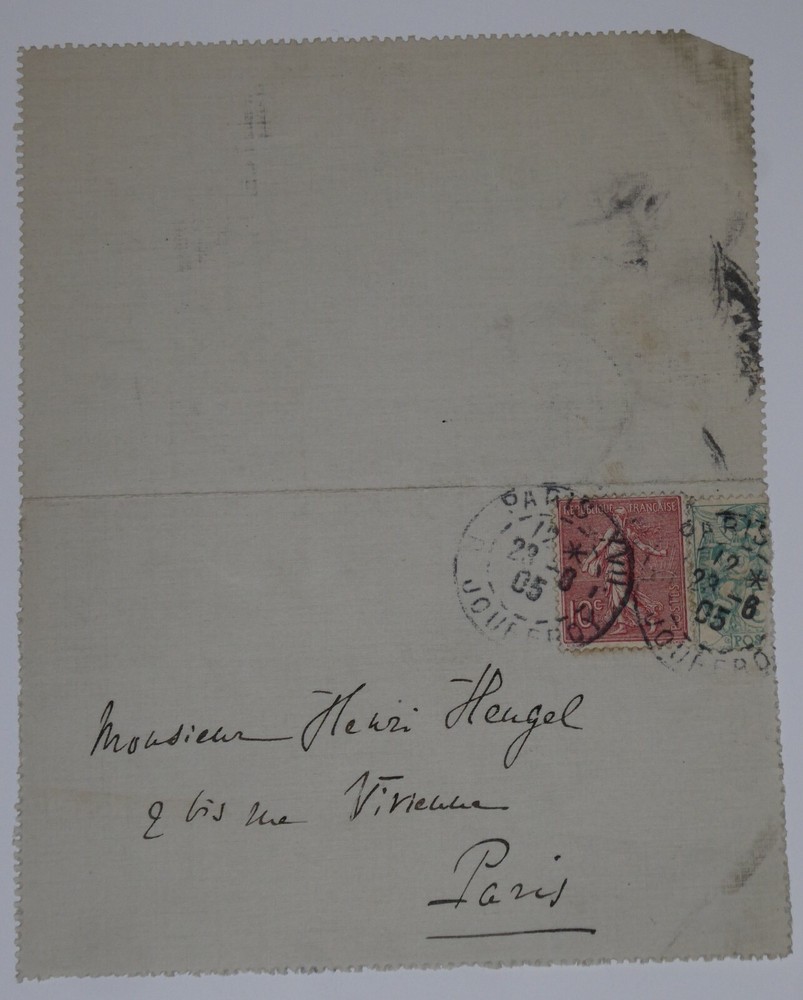 PARIS XVIII
12 * 
23 -8
05
R. JOUFFROY
REPUBLIQUE FRANÇAISE
10c
POSTES
PARIS
12 *
23 -8
05
JOUFFRO
POS
Monsieur Henri Heugel
2 bis rue Vivienne
Paris